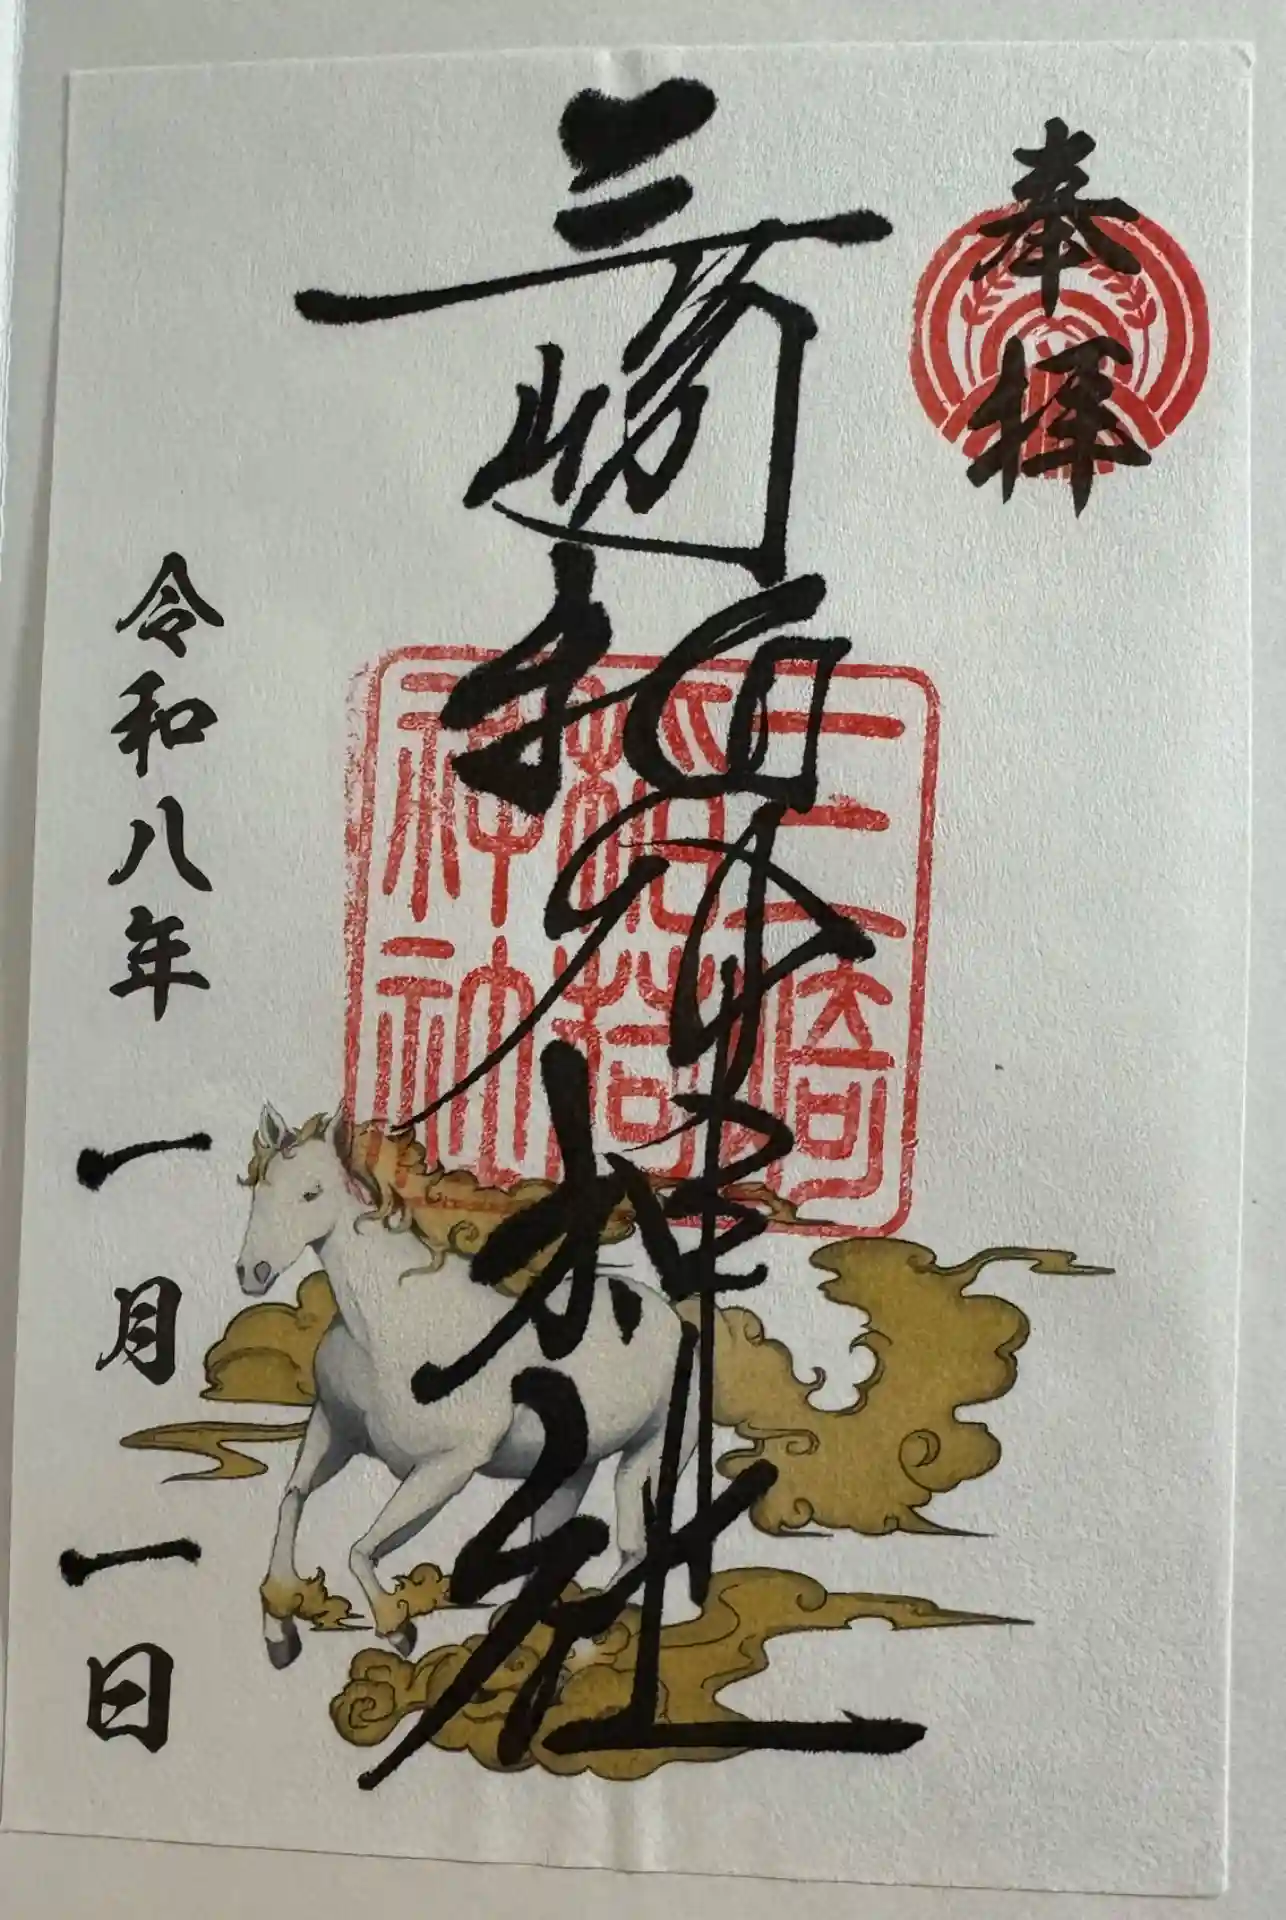 奉拝
三崎稲荷神社
三崎
稲荷
神社
令和八年一月一日